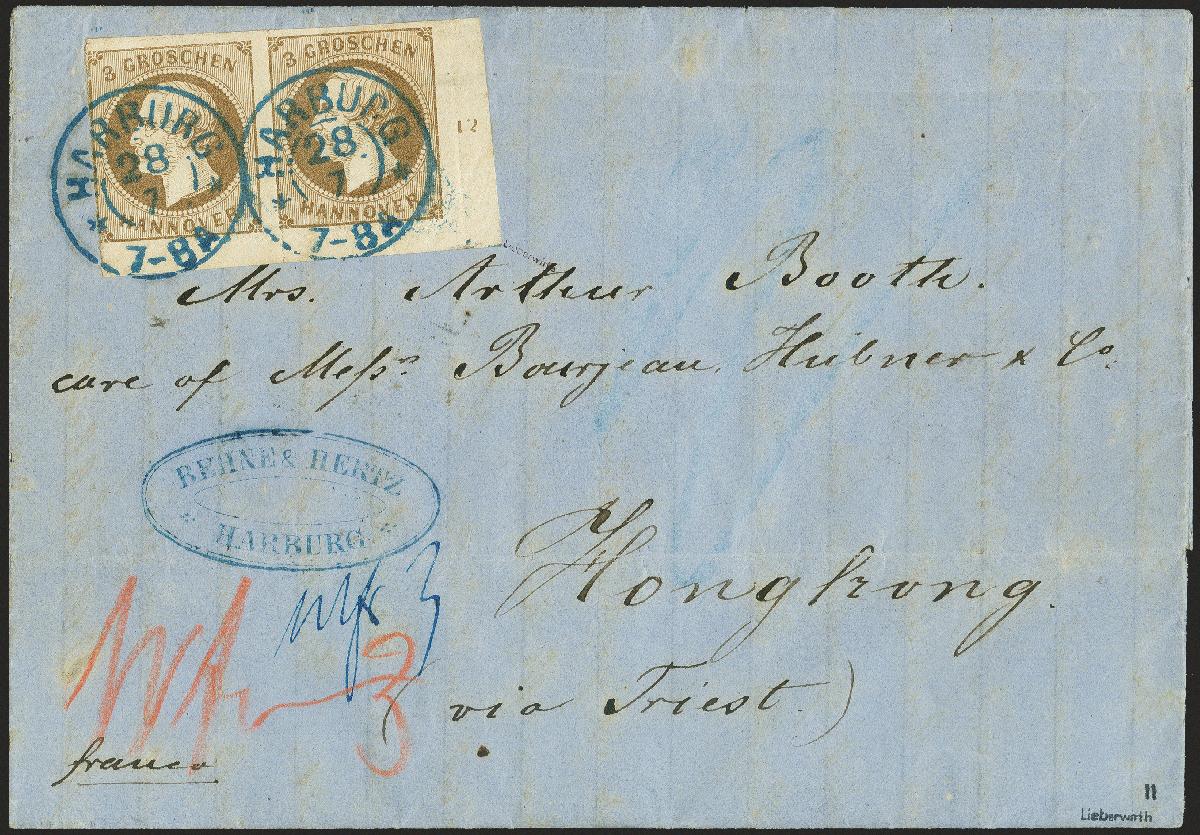 3 GROSCHEN
HANNOVER
3 GROSCHEN
HANNOVER
12
HARBURG
28
7
7-8A
HARBURG
28
7
7-8A
Lieberwirth
Mrs. Arthur Booth.
care of Messrs Bourjeau, Hübner & Co.
BEHNE & HERTZ
HARBURG
Hongkong.
3
3
(via Triest.)
franco
II
Lieberwirth